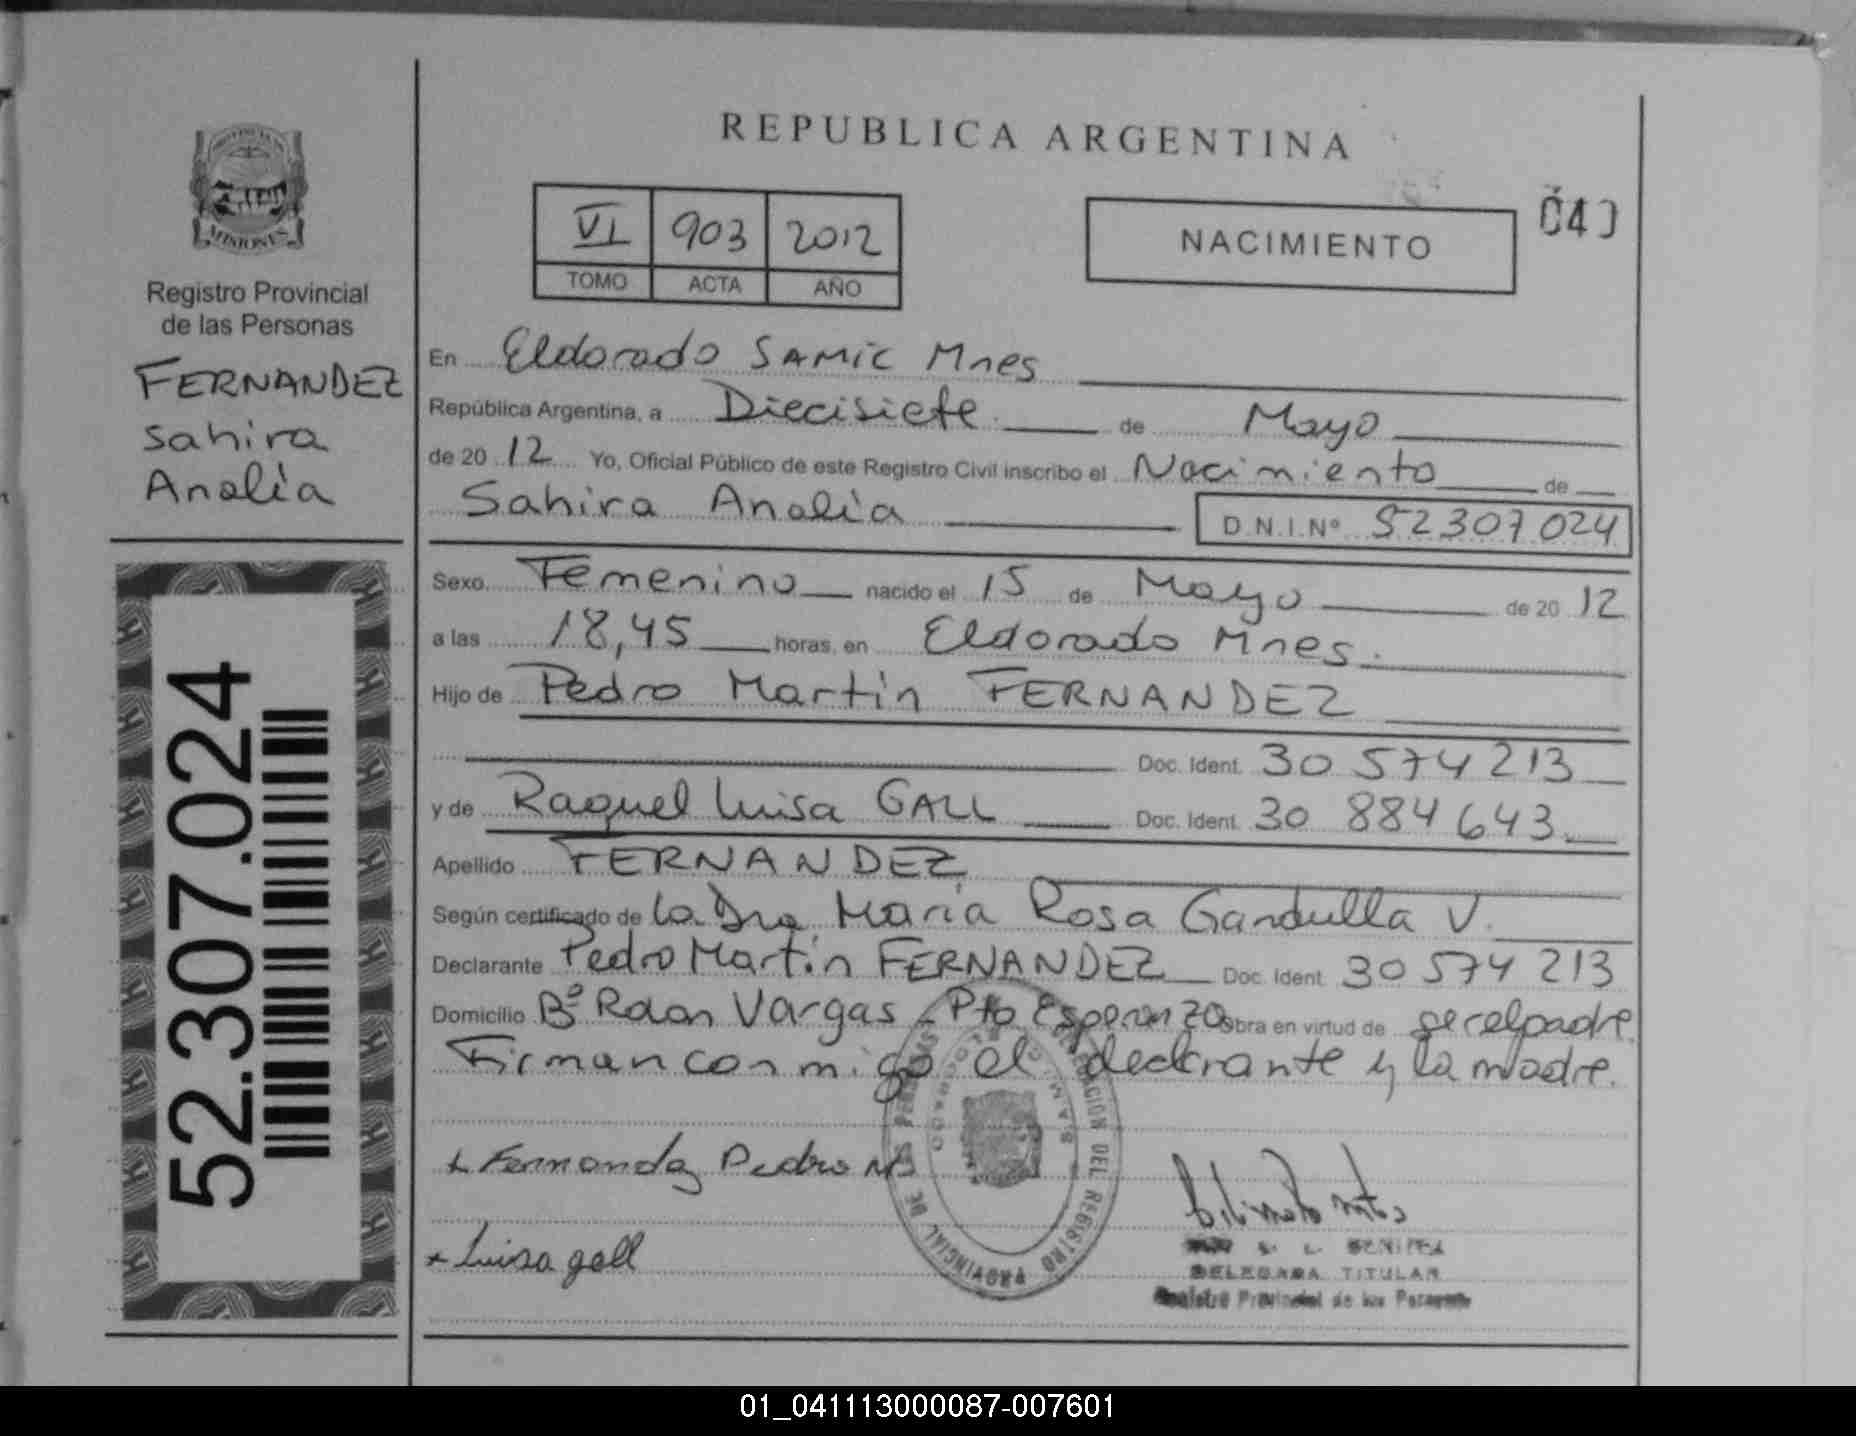 REPUBLICA ARGENTINA
PROVINCIA
MISIONES
Registro Provincial
de las Personas
FERNANDEZ
Sahira
Analia
52.307.024
VI 903 2012
TOMO ACTA AÑO
NACIMIENTO
En Eldorado SAMIC Mnes
República Argentina, a Diecisiete de Mayo
de 20 12 Yo, Oficial Público de este Registro Civil inscribo el Nacimiento de
Sahira Analia D.N.I.Nº 52307024
Sexo Femenino nacido el 15 de Mayo de 20 12
a las 18,45 horas, en Eldorado Mnes.
Hijo de Pedro Martin FERNANDEZ
Doc. Ident. 30 574 213
y de Raquel Luisa GALL Doc. Ident. 30 884 643
Apellido FERNANDEZ
Según certificado de la Dra. Maria Rosa Gandulla V.
Declarante Pedro Martin FERNANDEZ Doc. Ident. 30 574 213
Domicilio Bº Vargas Pto Esperanza Obra en virtud de ser el padre.
Firman conmigo el declarante y la madre.
Fernandez Pedro M
Luisa gall
DELEGACION DEL REGISTRO PROVINCIAL DE LAS PERSONAS
ELDORADO
S. L. BENITEZ
DELEGADA TITULAR
Registro Provincial de las Personas
01_041113000087-007601